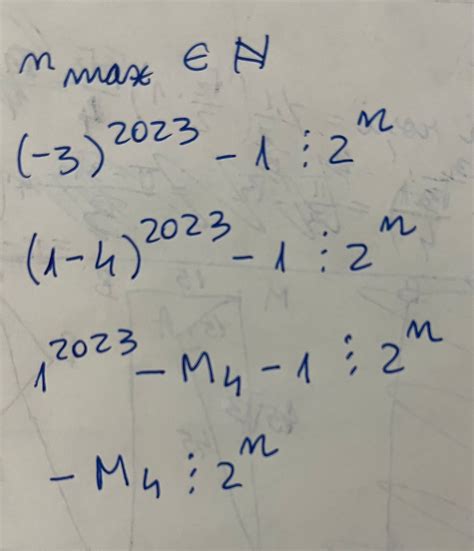 n max ∈ ℕ
(-3)^2023 - 1 ⋮ 2^n
(1-4)^2023 - 1 ⋮ 2^n
1^2023 - M₄ - 1 ⋮ 2^n
- M₄ ⋮ 2^n